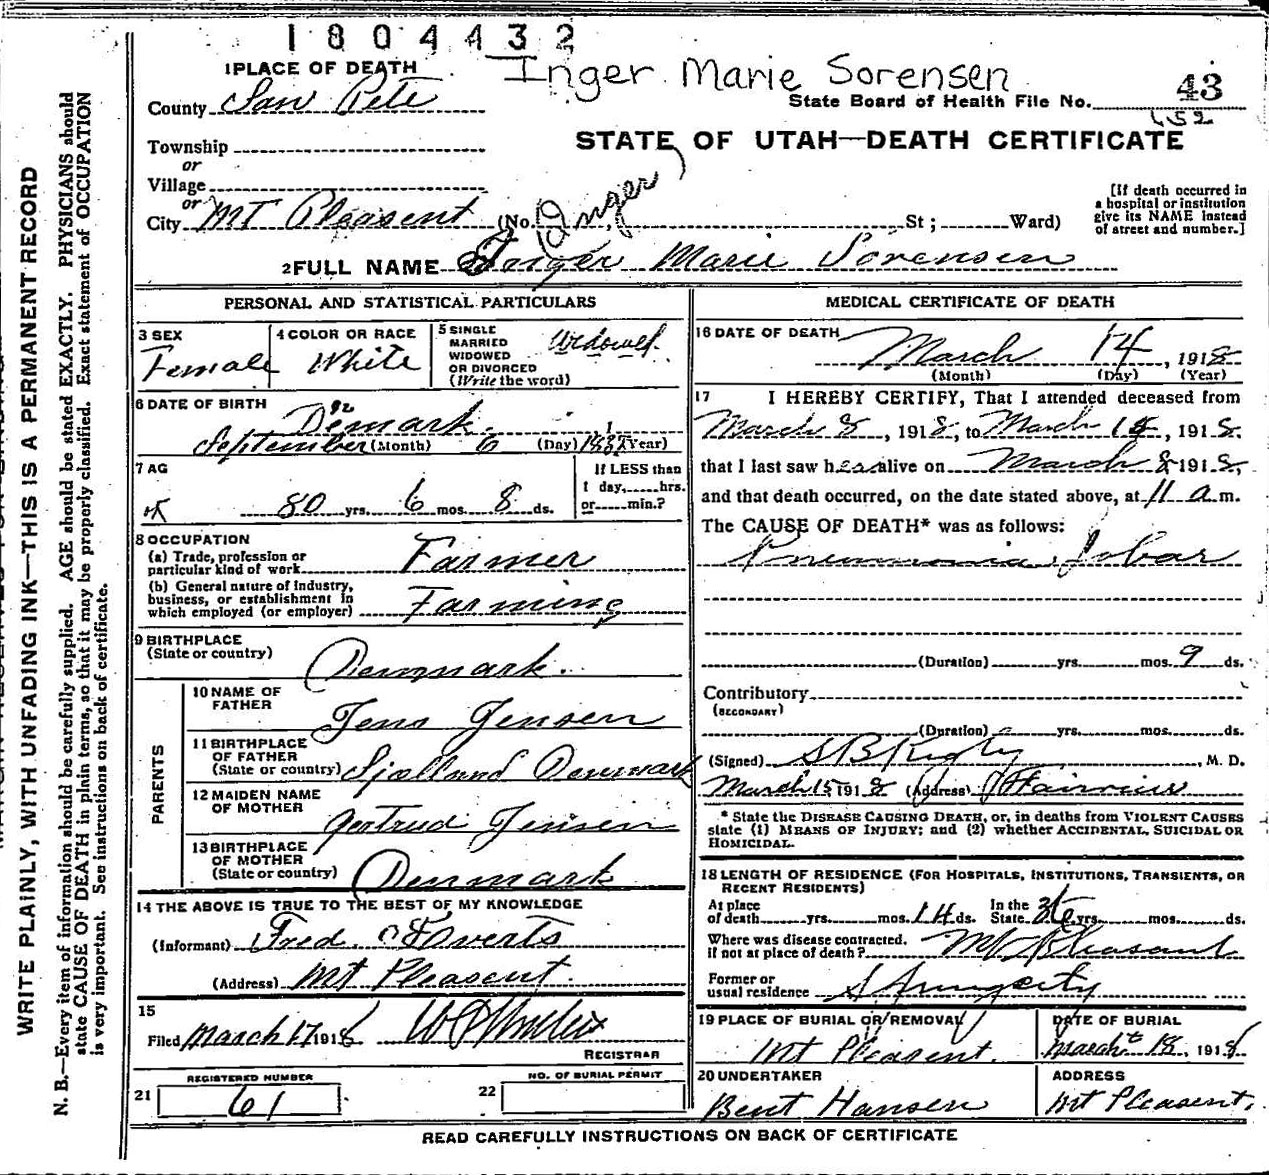 1804432
Inger Marie Sorensen
1 PLACE OF DEATH
County San Pete
State Board of Health File No. 43
Township
or
Village
or
City Mt Pleasent (No. St; Ward)
STATE OF UTAH—DEATH CERTIFICATE
[If death occurred in
a hospital or institution
give its NAME instead
of street and number.]
Inger
2 FULL NAME Inger Marie Sorensen
PERSONAL AND STATISTICAL PARTICULARS
3 SEX
Female
4 COLOR OR RACE
White
5 SINGLE
MARRIED
WIDOWED
OR DIVORCED
(Write the word)
Widowed
6 DATE OF BIRTH
Denmark
September (Month) 6 (Day) 1837 (Year)
7 AG
80 yrs. 6 mos. 8 ds.
If LESS than
1 day, hrs.
or min.?
8 OCCUPATION
(a) Trade, profession or
particular kind of work Farmer
(b) General nature of industry,
business, or establishment in
which employed (or employer) Farming
9 BIRTHPLACE
(State or country)
Denmark.
PARENTS
10 NAME OF
FATHER
Jens Jensen
11 BIRTHPLACE
OF FATHER
(State or country) Sjolland Denmark
12 MAIDEN NAME
OF MOTHER
Gertrud Jensen
13 BIRTHPLACE
OF MOTHER
(State or country) Denmark
14 THE ABOVE IS TRUE TO THE BEST OF MY KNOWLEDGE
(Informant) Fred Everts
(Address) Mt Pleasent.
15
Filed March 17 1918
REGISTRAR
REGISTERED NUMBER
21 61
NO. OF BURIAL PERMIT
22
MEDICAL CERTIFICATE OF DEATH
16 DATE OF DEATH
March 14, 1918
(Month) (Day) (Year)
17 I HEREBY CERTIFY, That I attended deceased from
March 8, 1918, to March 14, 1918.
that I last saw her alive on March 8 1918,
and that death occurred, on the date stated above, at 11 a m.
The CAUSE OF DEATH* was as follows:
Pneumonia, Lobar
(Duration) yrs. mos. 9 ds.
Contributory
(SECONDARY)
(Duration) yrs. mos. ds.
(Signed) S B Rigby, M. D.
March 15 1918 (Address) Fairview
* State the DISEASE CAUSING DEATH, or, in deaths from VIOLENT CAUSES
state (1) MEANS OF INJURY; and (2) whether ACCIDENTAL, SUICIDAL OR
HOMICIDAL.
18 LENGTH OF RESIDENCE (FOR HOSPITALS, INSTITUTIONS, TRANSIENTS, OR
RECENT RESIDENTS)
At place
of death yrs. mos. 14 ds. In the
State 36 yrs. mos. ds.
Where was disease contracted,
if not at place of death? Mt Pleasant
Former or
usual residence Spring city
19 PLACE OF BURIAL OR REMOVAL
Mt Pleasent.
DATE OF BURIAL
March 18, 1918
20 UNDERTAKER
Bent Hansen
ADDRESS
Mt Pleasent.
READ CAREFULLY INSTRUCTIONS ON BACK OF CERTIFICATE
WRITE PLAINLY, WITH UNFADING INK—THIS IS A PERMANENT RECORD
N. B.—Every item of information should be carefully supplied. AGE should be stated EXACTLY. PHYSICIANS should
state CAUSE OF DEATH in plain terms, so that it may be properly classified. Exact statement of OCCUPATION
is very important. See instructions on back of certificate.